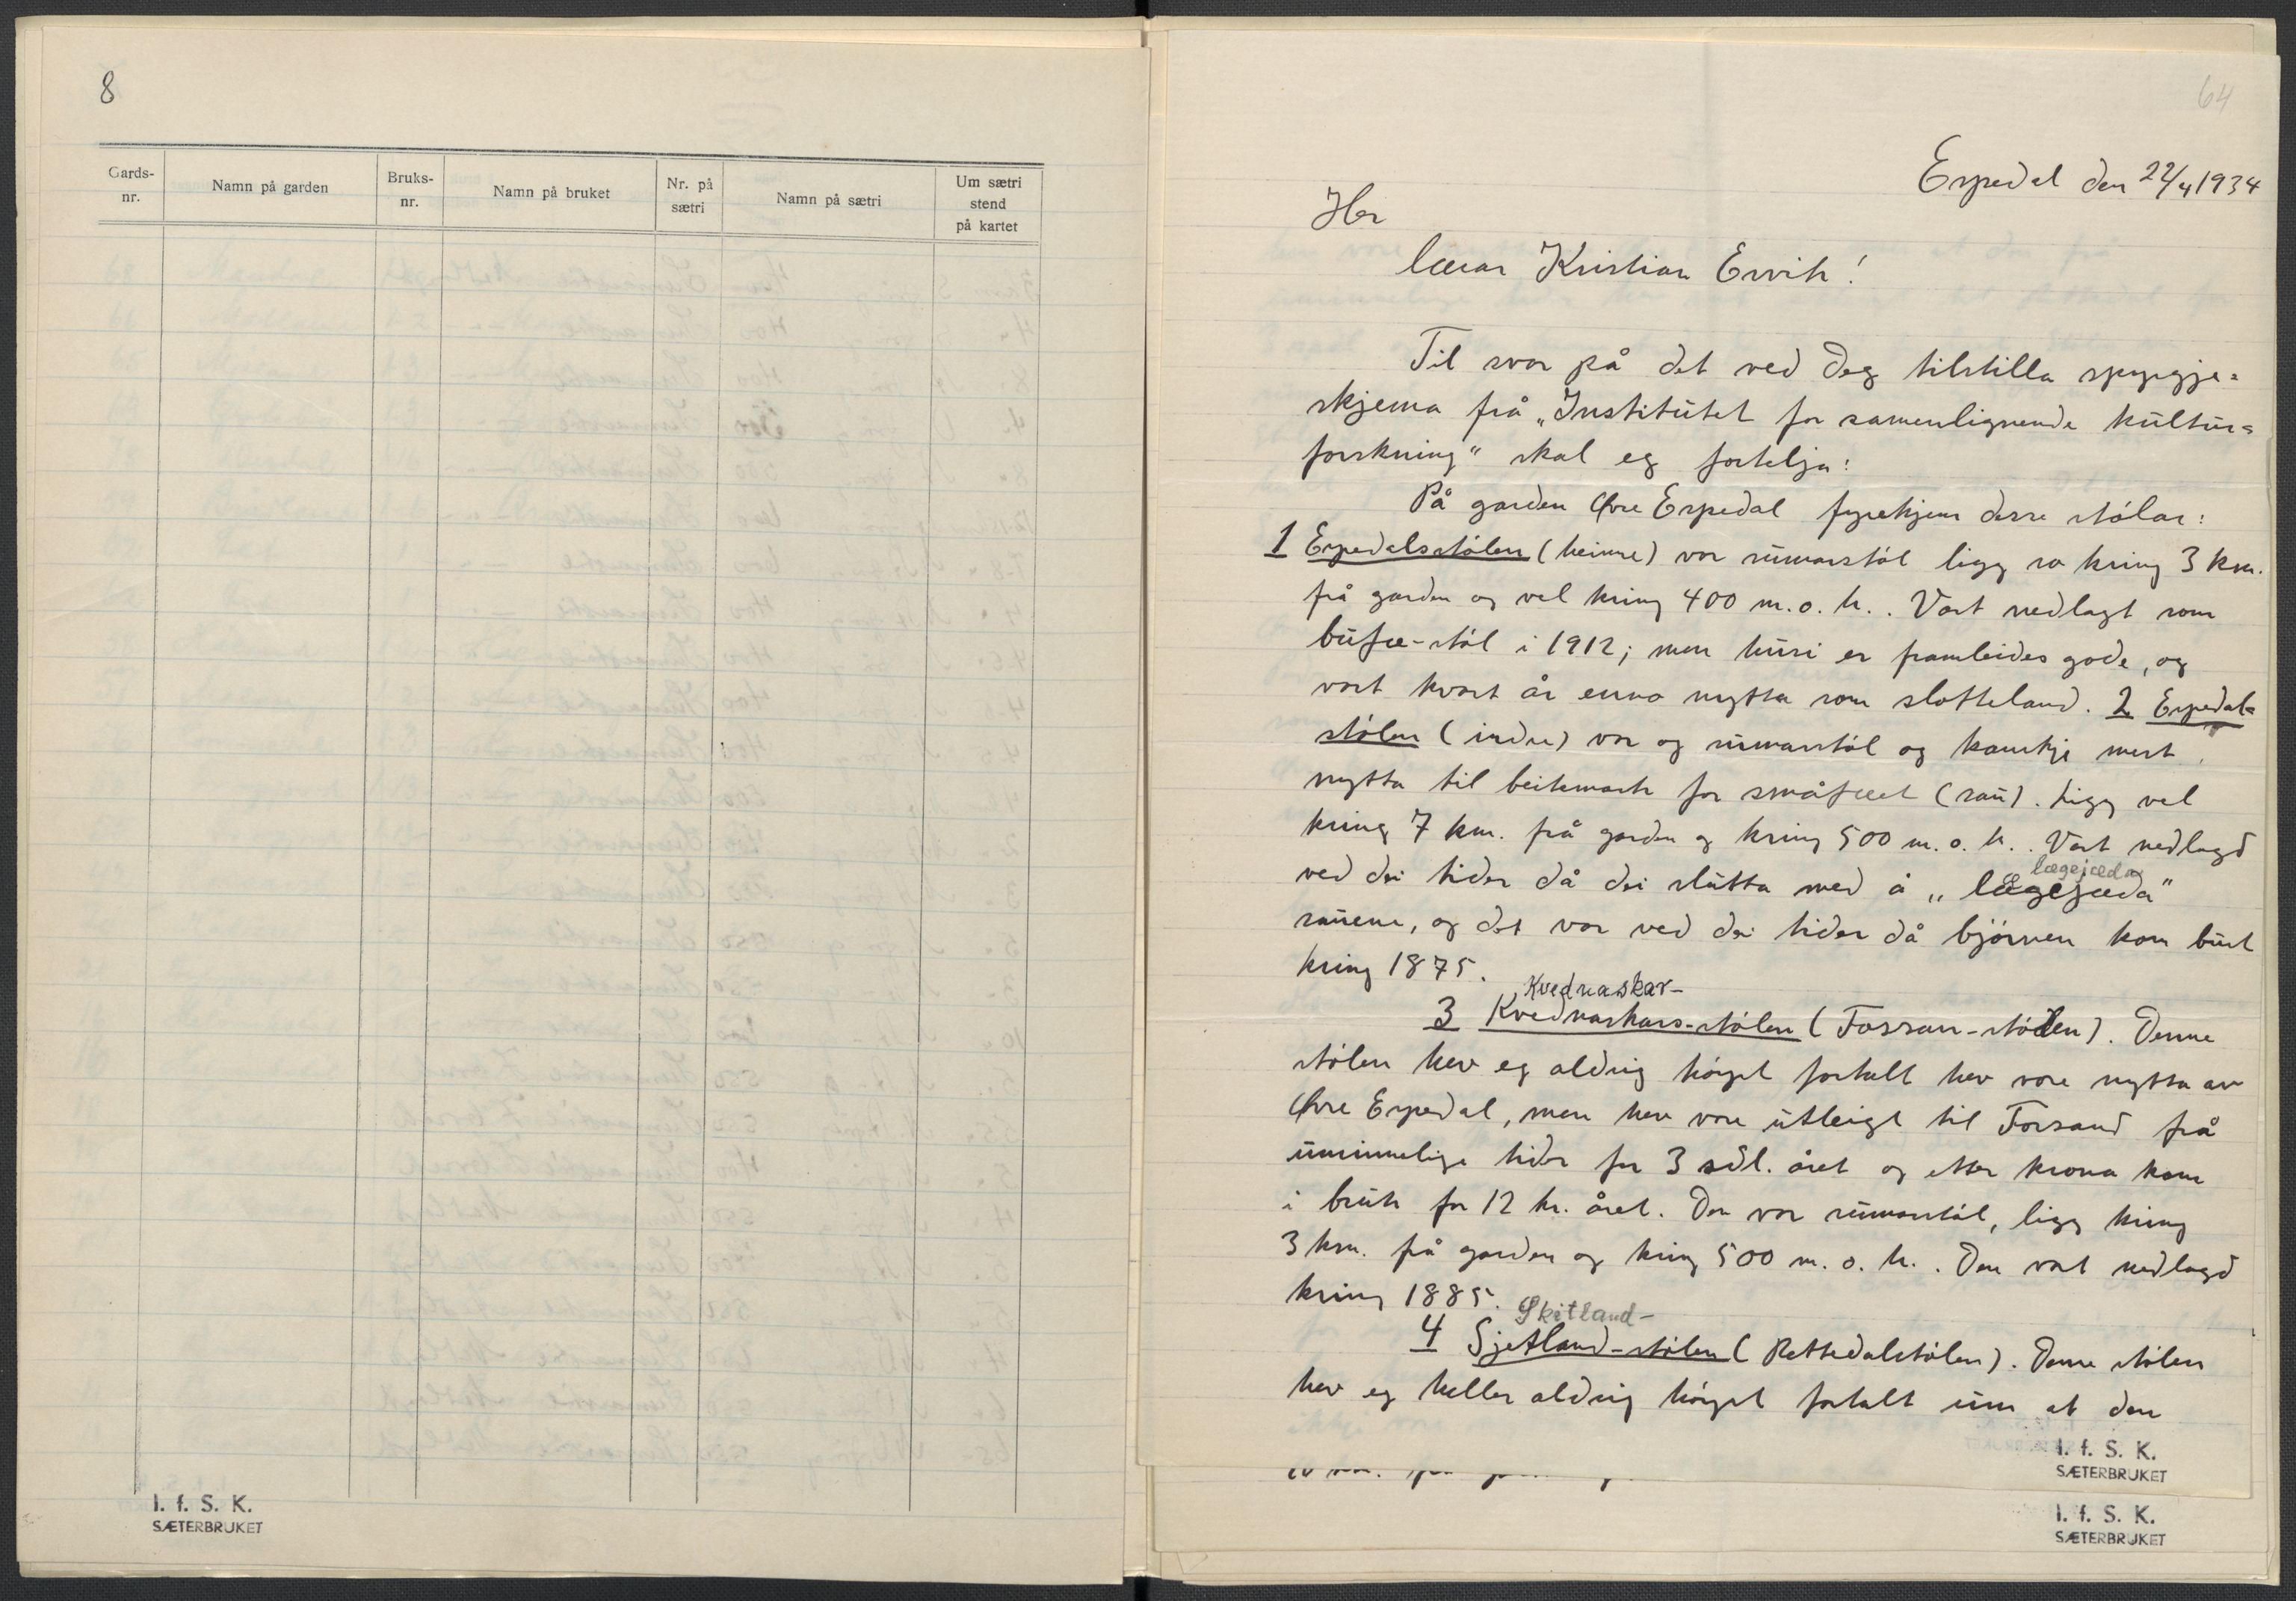 8
Gards-
nr.
Namn på garden
Bruks-
nr.
Namn på bruket
Nr. på
sætri
Namn på sætri
Um sætri
stend
på kartet
I. f. S. K.
SÆTERBRUKET
64
Espedal den 22/4 1934
Hr
lærar Kristian Ervik!
Til svar på det ved Deg tilstilla spyrgje=
skjema frå „Institutet for samenlignende kultur=
forskning" skal eg fortelja:
På garden Øvre Espedal fyrekjem desse stólar:
1 Espedalsstólen (heimre) var sumarstól ligg so kring 3 km.
frå garden og vel kring 400 m.o.h.. Vart nedlagt som
bufe-stól i 1912; men husi er framleides gode, og
vert kvart år enno nytta som slotteland. 2 Espedal=
stólen (indre) var og sumarstól og kanskje mest
nytta til beitemark for småfeet (sau). Ligg vel
kring 7 km. frå garden og kring 500 m.o.h.. Vart nedlagd
lægejæda
ved dei tider då dei slutta med å „lægejæda"
sauene, og det var ved dei tider då bjørnen kom burt
kring 1875.
Kvednaskar-
3 Kvednaskars-stólen (Fossan-stólen). Denne
stólen hev eg aldrig høyrt fortalt hev vore nytta av
Øvre Espedal, men hev vore utleigt til Forsand frå
uminnelige tider for 3 sdl. året og etter krona kom
i bruk for 12 kr. året. Den var sumarstól, ligg kring
3 km. frå garden og kring 500 m.o.h.. Den vart nedlagd
kring 1885.
Skitland-
4 Sjetland-stólen (Rettedalstólen). Denne stólen
hev eg heller aldrig høyrt fortalt um at den
I. f. S. K.
SÆTERBRUKET
I. f. S. K.
SÆTERBRUKET